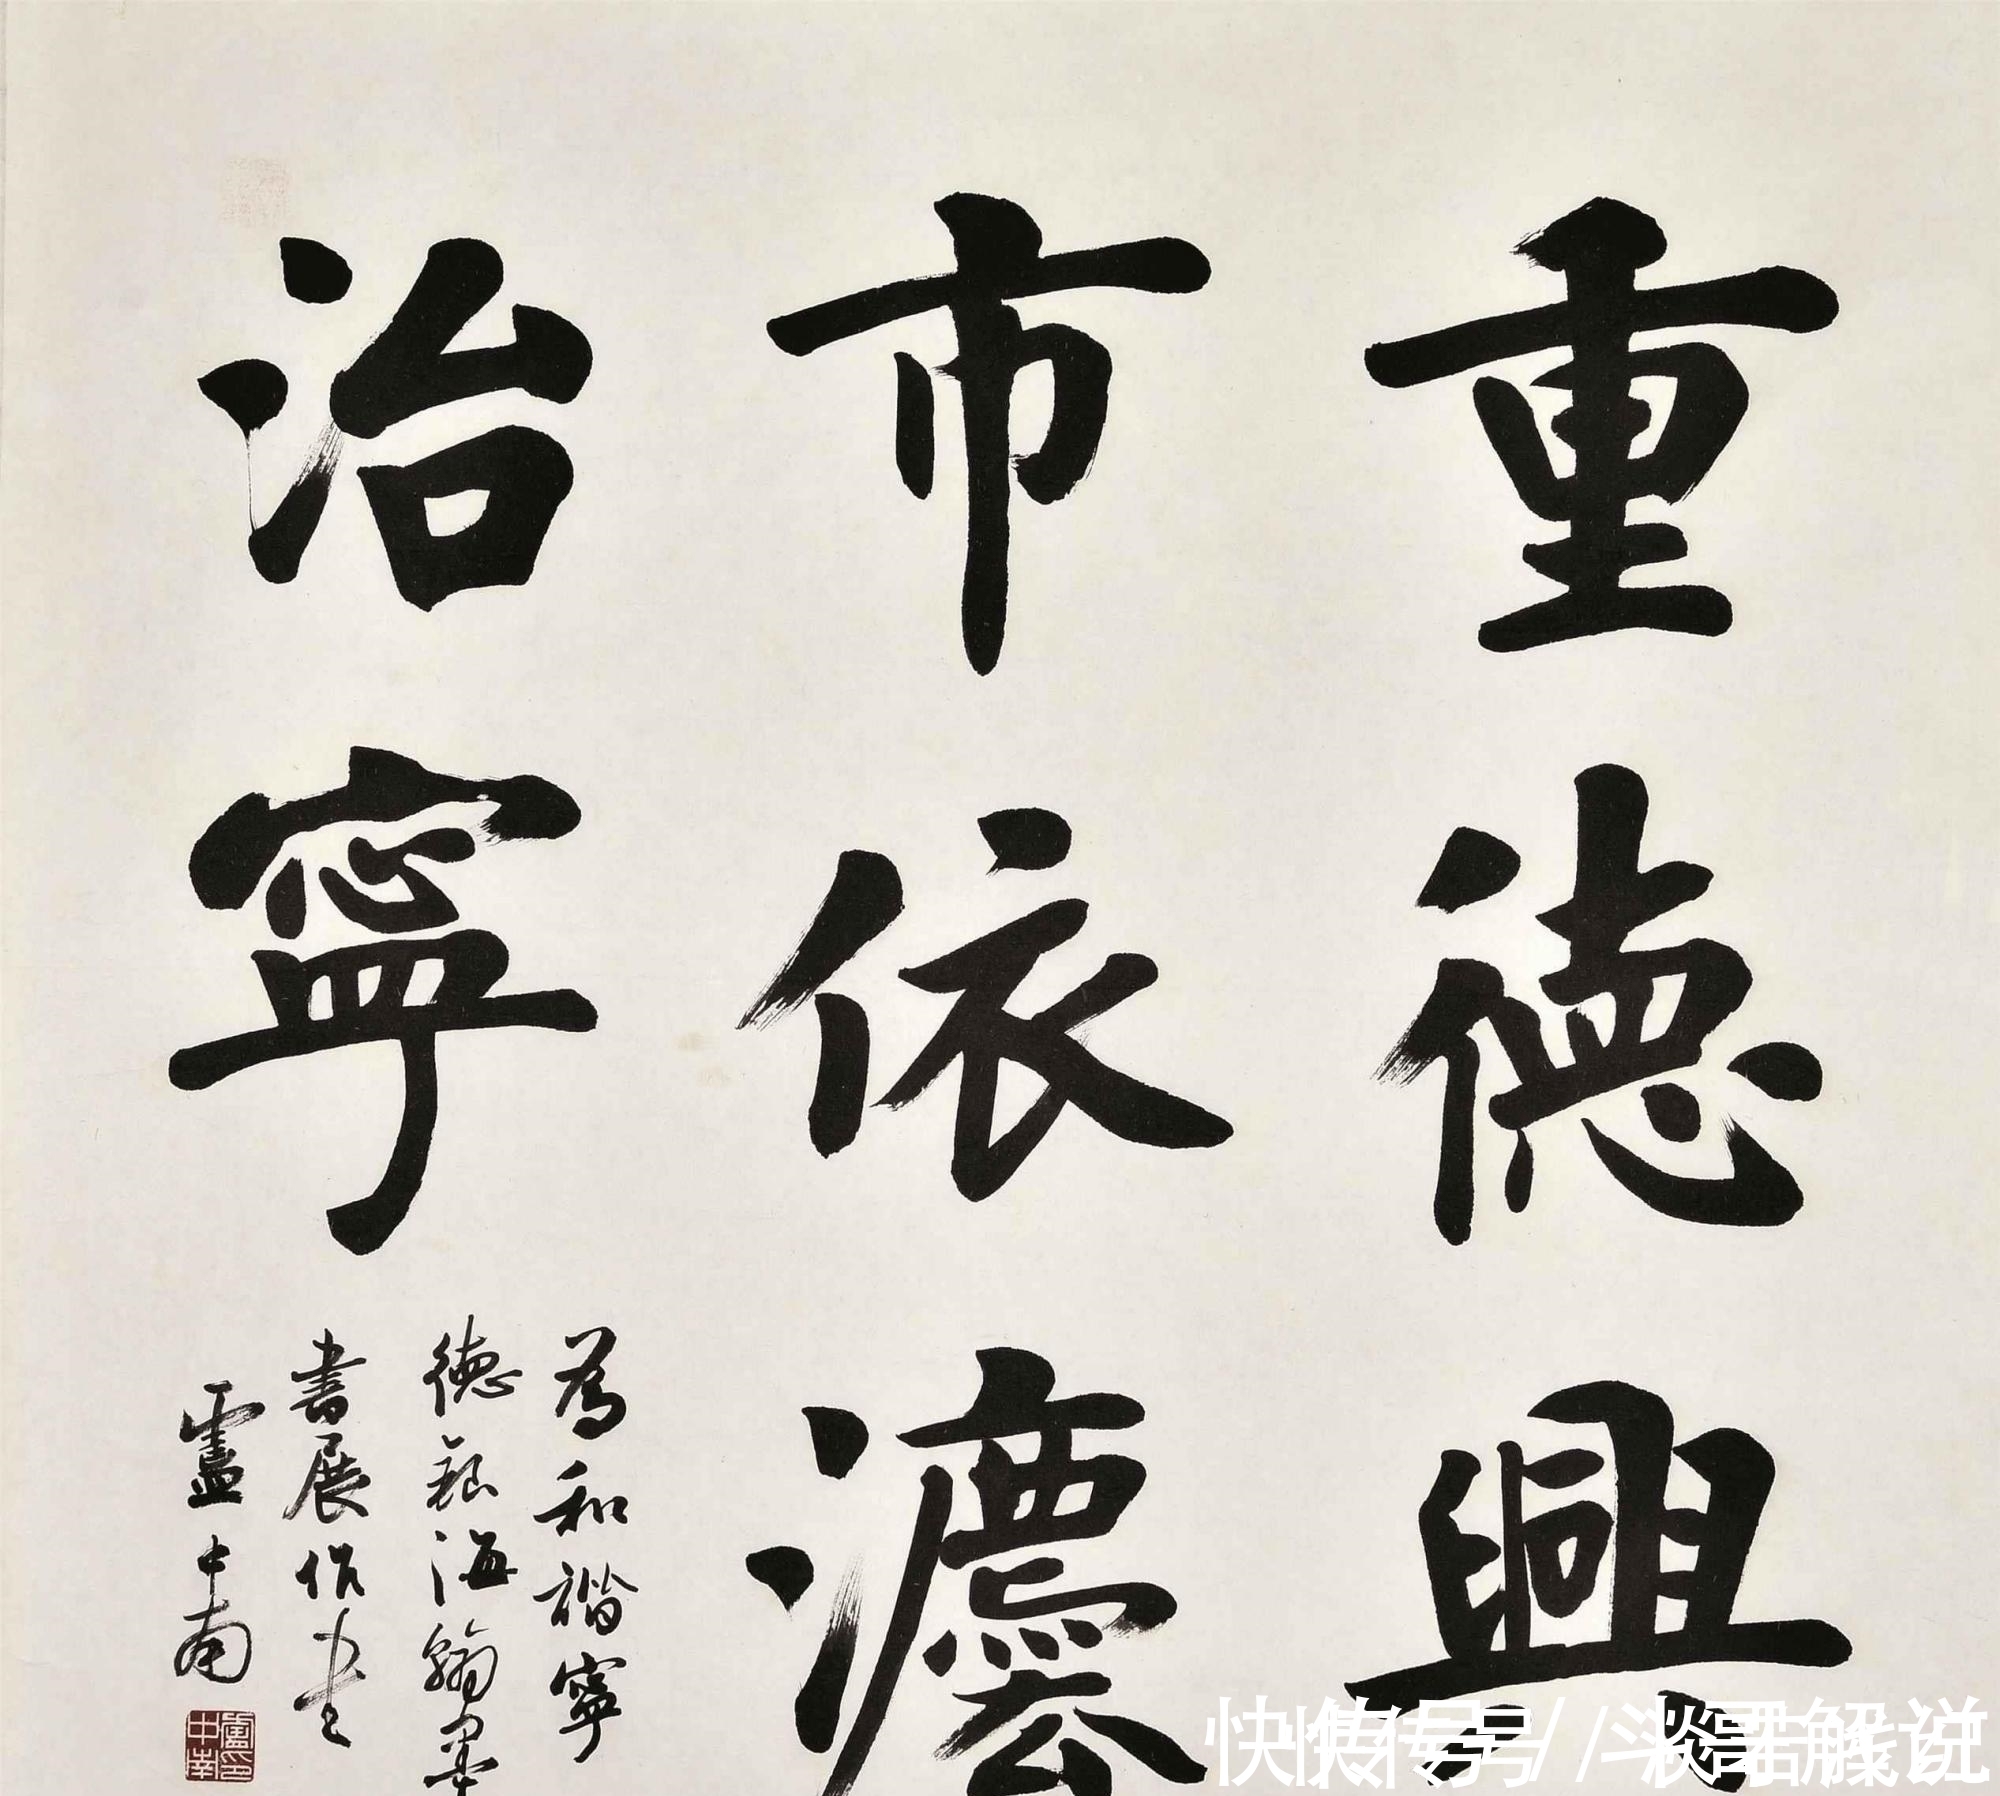 重德興
市依灋
治寧
為和諧寧
德銀海翰墨
書展作書
盧中南
盧印中南
快传号//
解说